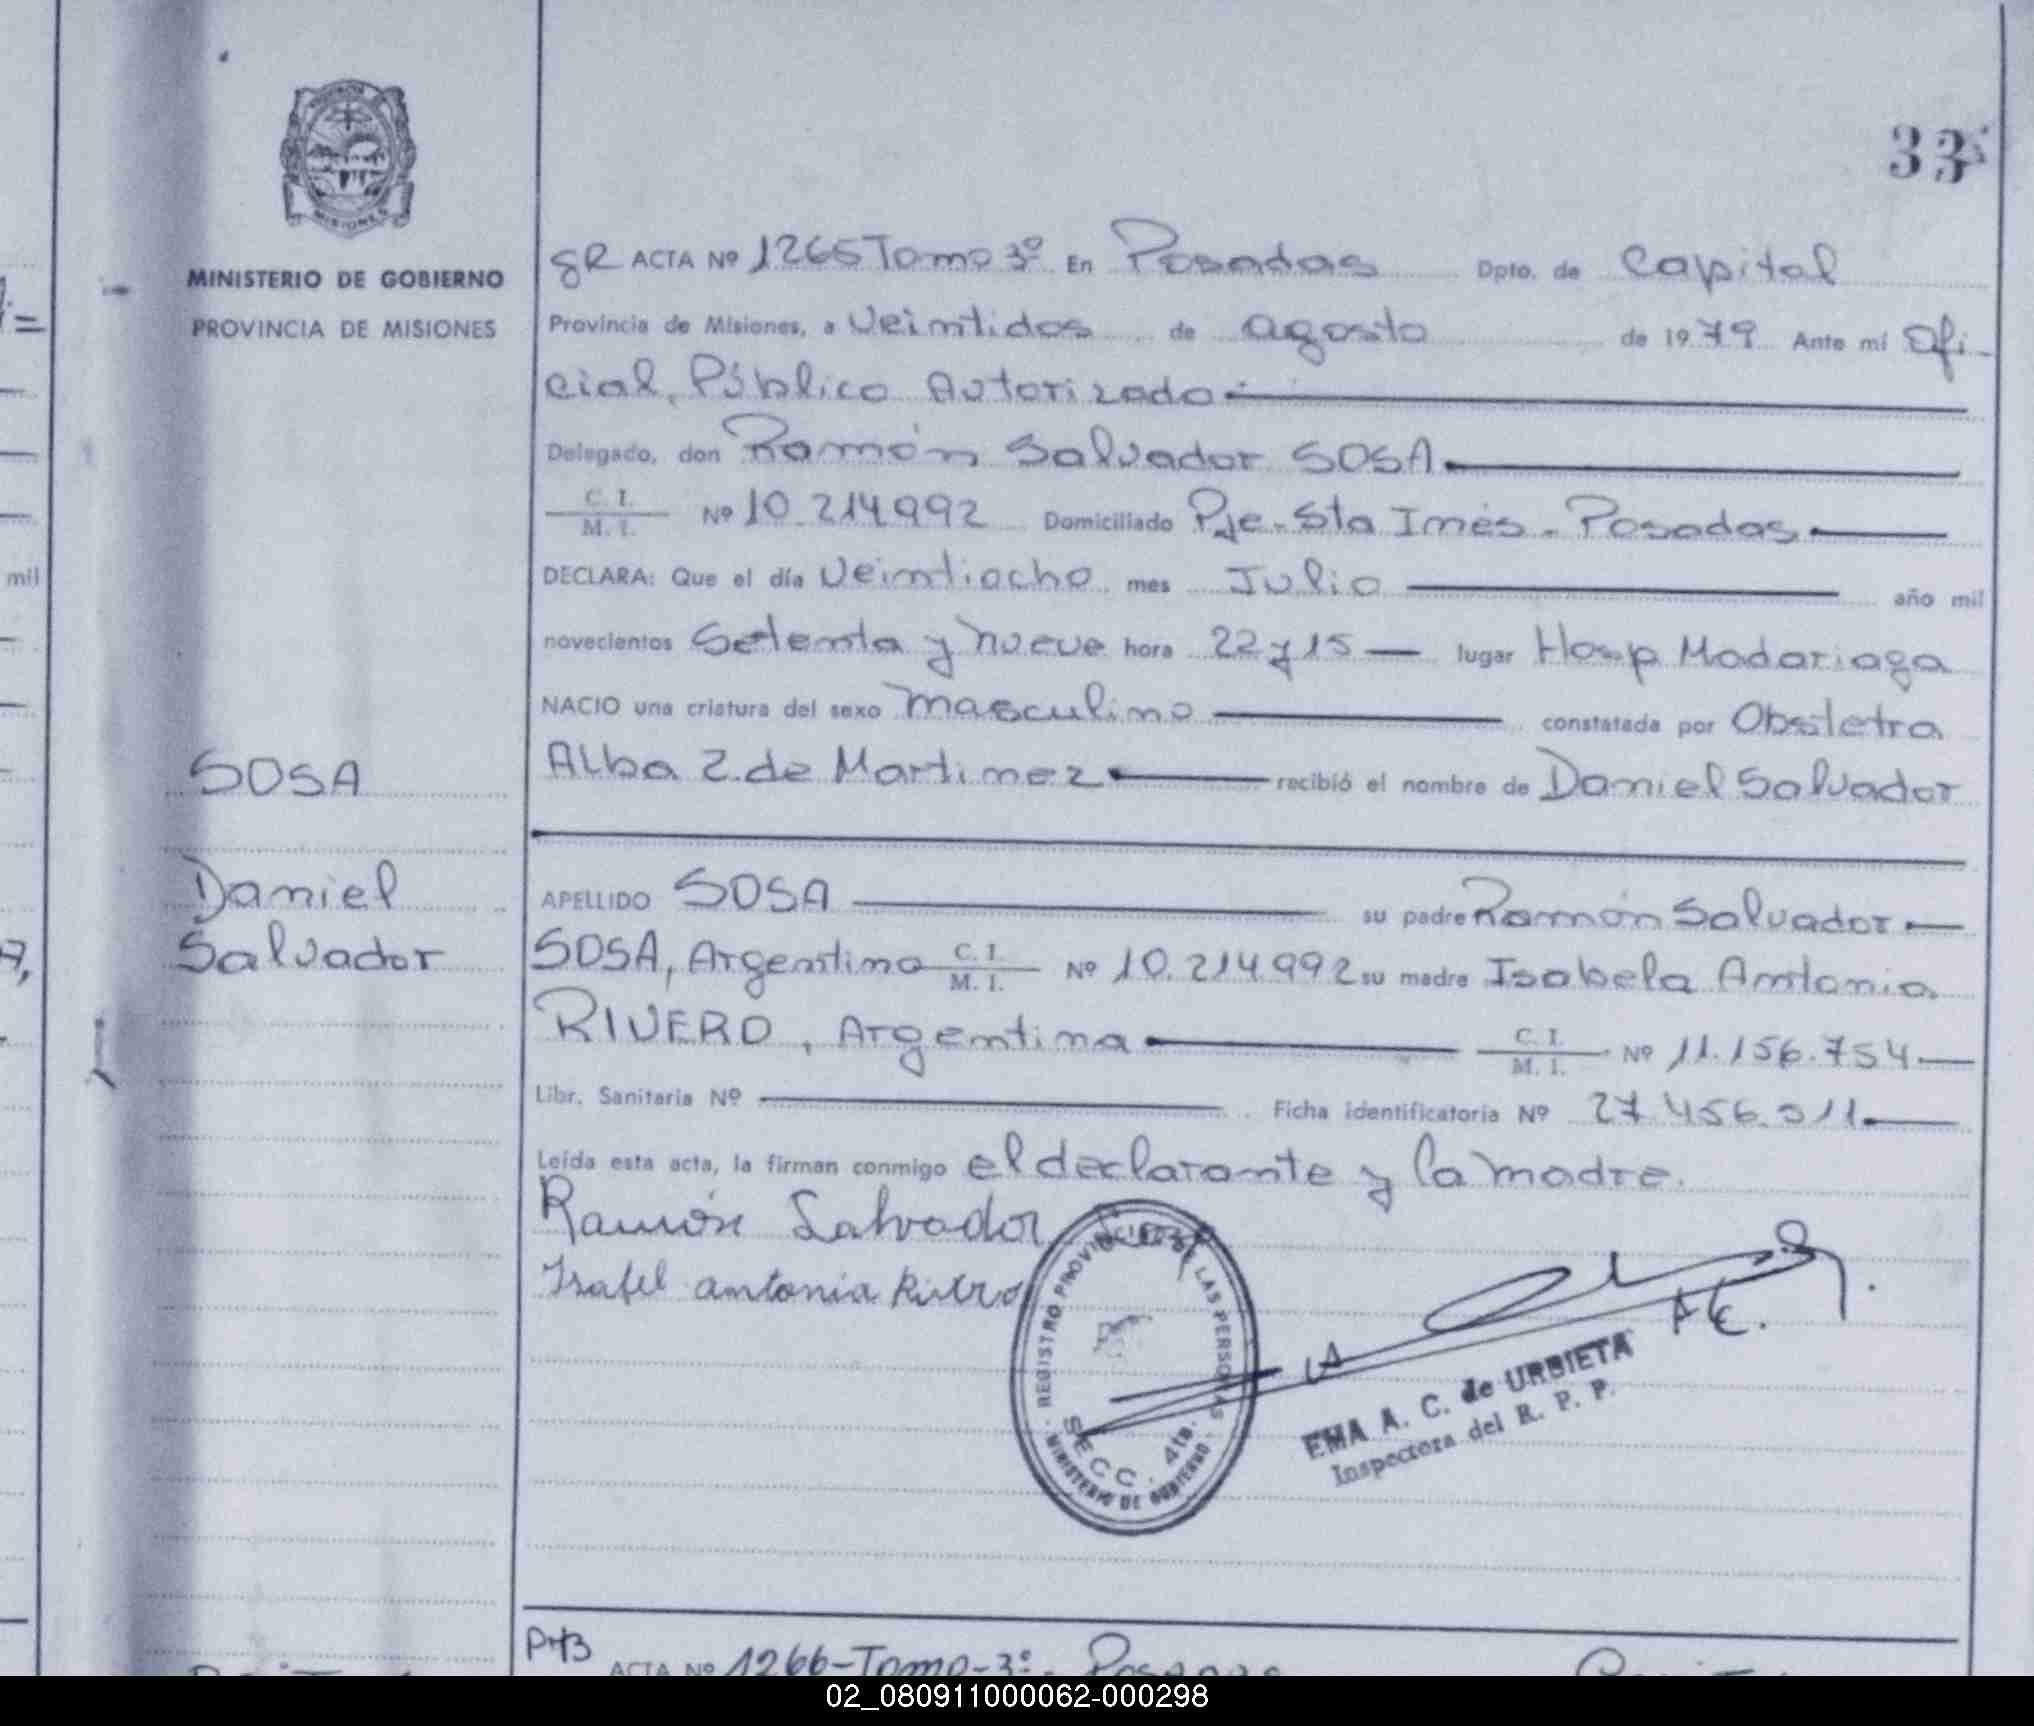 33
MINISTERIO DE GOBIERNO
PROVINCIA DE MISIONES
MISIONES
SOSA
Daniel
Salvador
mil
gR ACTA Nº 1265 Tomo 3º En Posadas Dpto. de Capital
Provincia de Misiones, a Veintidos de agosto de 1979 Ante mí Ofi-
cial, Público Autorizado
Delegado, don Ramón Salvador SOSA
C. I.
M. I. Nº 10.214992 Domiciliado Pje. Sta Inés - Posadas
DECLARA: Que el día Veintiocho mes Julio año mil
novecientos Setenta y nueve hora 22 y 15 — lugar Hosp Madariaga
NACIO una criatura del sexo masculino constatada por Obstetra
Alba Z. de Martinez recibió el nombre de Daniel Salvador
APELLIDO SOSA su padre Ramón Salvador —
SOSA, Argentino C. I. M. I. Nº 10.214.992 su madre Isabela Antonia
RIVERO, Argentina C. I. M. I. Nº 11.156.754 —
Libr. Sanitaria Nº Ficha identificatoria Nº 27.456.011 —
Leída esta acta, la firman conmigo el declarante y la madre.
Ramón Salvador
Isabel antonia Rivero
REGISTRO PROVINCIAL DE LAS PERSONAS
SECC. 4ta.
MINISTERIO DE GOBIERNO
EMA A. C. de URBIETA
Inspectora del R. P. P.
PHB
ACTA Nº 1266-Tomo-3º- Posadas
02_080911000062-000298